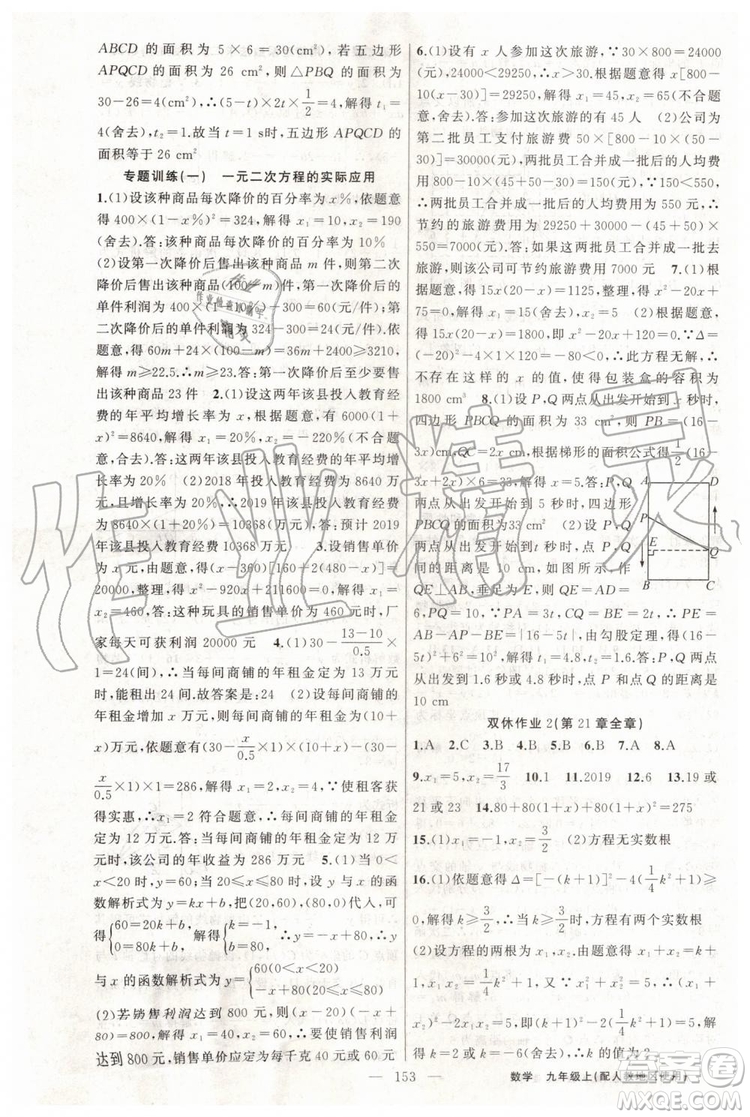 ABCD 的面积为 5×6=30(cm²),若五边形
APQCD 的面积为 26 cm²,则△PBQ 的面积为
30-26=4(cm²),∴(5-t)×2t×1/2=4,解得 t₁=
4(舍去),t₂=1,故当 t=1 s时,五边形 APQCD 的
面积等于 26 cm²
专题训练(一) 一元二次方程的实际应用
1.(1)设该种商品每次降价的百分率为 x%,依题意
得 400×(1-x%)²=324,解得 x₁=10,x₂=190
(舍去).答:该种商品每次降价的百分率为 10%
(2)设第一次降价后售出该种商品 m 件,则第二次
降价后售出该种商品(100-m)件,第一次降价后的
单件利润为 400×(1-10%)-300=60(元/件);第
二次降价后的单件利润为 324-300=24(元/件).依
题意,得 60m+24×(100-m)=36m+2400≥3210,
解得 m≥22.5.∴m≥23.答:第一次降价后至少要售
出该种商品 23 件 2.(1)设该县投入教育经费
的年平均增长率为 x,根据题意,得 6000(1+
x)²=8640,解得 x₁=20%,x₂=-2.2(不合题意,
舍去).答:这两年该县投入教育经费的年平均增
长率为 20% (2)2018 年投入教育经费为 8640 万
元,且增长率为 20%,∴2019 年该县投入教育经费
为 8640×(1+20%)=10368(万元).答:预计 2019
年该县投入教育经费 10368 万元 3.设销售单价
为 x 元,由题意,得(x-360)[160+2(480-x)]=
20000,整理,得 x²-920x+211600=0,解得 x₁=
x₂=460.答:这种玩具的销售单价为 460 元时,厂
家每天可获利润 20000 元 4.(1)30-(13-10)/0.5×
1=24(间),∴当每间商铺的年租金定为 13 万元
时,能租出 24 间.故答案是:24 (2)设每间商铺的
年租金增加 x 万元,则每间商铺的年租金为(10+
x)万元,依题意有(30-x/0.5×1)×(10+x)-(30-
x/0.5×1)×1=286,解得 x₁=2,x₂=3,为使租客获
得实惠,∴x₁=2 符合题意,∴每间商铺的年租金
定为 12 万元.答:当每间商铺的年租金定为 12 万
元时,该公司的年收益为 286 万元 5.(1)当 0<
x<20 时,y=60;当 20≤x≤80 时,设 y 与 x 的函
数解析式为 y=kx+b,把(20,60),(80,0)代入,可
得{60=20k+b, 0=80k+b, 解得{k=-1, b=80, ∴y=-x+80,∴y
与 x 的函数解析式为 y={60(0<x<20) -x+80(20≤x≤80)
(2)若销售利润达到 800 元,则(x-20)(-x+80)=
达到 800 元,销售单价应定为每千克 40 元或 60元
6.(1)设有 x 人参加这次旅游,∵30×800=24000
(元),24000<29250,∴x>30,依题意得 x[800-
10(x-30)]=29250,解得 x₁=45,x₂=65(不合题意,
舍去).答:参加这次旅游的有 45 人 (2)公司为
第二批员工支付旅游费为 50×[800-10×(50-
30)]=30000(元),∵两批员工合并成一批后的人均费
用=
∴两批员工合并成一批后的人均费用为 550元,∴
节约的旅游费用为 29250+30000-(45+50)×
550=7000(元).答:如果这两批员工合并成一批去
旅游,则该公司可节约旅游费用 7000 元 7.(1)
根据题意,得 15x(20-2x)=720,整理,得 x²-
不存在这样的 x 的值,使得包装盒的容积为
1800 cm³ 8.(1)设 P,Q 两点从出发开始到 x 秒时,
四边形 PBCQ 的面积为 33 cm²,则 PB=(16-
3x)cm,QC=2x cm,根据梯形的面积公式得 1/2(16-
3x+2x)×6=33,解得 x=5.答:P,Q 两
点从出发开始到 5 秒时,四边形
PBCQ 的面积为33 cm² (2)设 P,Q 两
点从出发开始到 t 秒时,点 P,Q
间的距离是 10 cm,如图所示,作
QE⊥AB,垂足为 E,则 QE=AD=6,
PQ=10,∵PA=3t,CQ=BE=2t,∴PE=
AB-AP-BE=|16-5t|,由勾股定理,得(16-
5t)²+6²=10²,解得 t₁=4.8,t₂=1.6.答:P,Q 两点
从出发开始到 1.6 秒或 4.8 秒时,点 P,Q 的距离是
10 cm
A
D
P
E
Q
B
C
双休作业 2(第 21 章全章)
1.A 2.C 3.B 4.B 5.B 6.A 7.A 8.A
9.x₁=5,x₂=17/3 10.1 11.2019 12.6 13.19 或
21 或 23 14.80+80(1+x)+80(1+x)²=275
15.(1)x₁=-1,x₂=3/2 (2)方程无实数根
16.(1)依题意得 Δ=[-(k+1)]²-4(1/4k²+1)≥
0,解得 k≥3/2,∴k≥3/2时,方程有两个实数根
(2)设方程的两根为 x₁,x₂,由题意得 x₁+x₂=
k+1,x₁x₂=1/4k²+1,又∵x₁²+x₂²=5,∴(x₁+
x₂)²-2x₁x₂=5,解得 k=2,∴k 的值为 2
153
数学 九年级上(配人教地区使用)
作业精灵